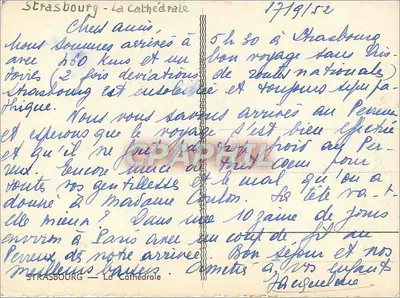 Strasbourg - La Cathédrale
17/9/52
Chers amis,
Nous sommes arrivés à 5 h 30 à Strasbourg
avec 460 kms et un bon voyage sans
(2 fois deviations de routes nationales)
Strasbourg est ensoleillée et toujours sympa-
thique.
Nous vous savons arrivés au Perreux
et espérons que le voyage s'est bien
et qu'il ne fait pas trop froid au Per-
reux. Encore merci de tout coeur pour
toutes vos gentillesses et le mal qu'on a
donné à Madame Coulon. Sa tête va-t-
elle mieux? Dans une 10zaine de jours
environ à Paris avec un coup de fil au
Perreux de notre arrivée. Bon séjour et nos
meilleurs baisers. à vos enfants
Jacqueline
STRASBOURG — La Cathédrale
CPARAMA